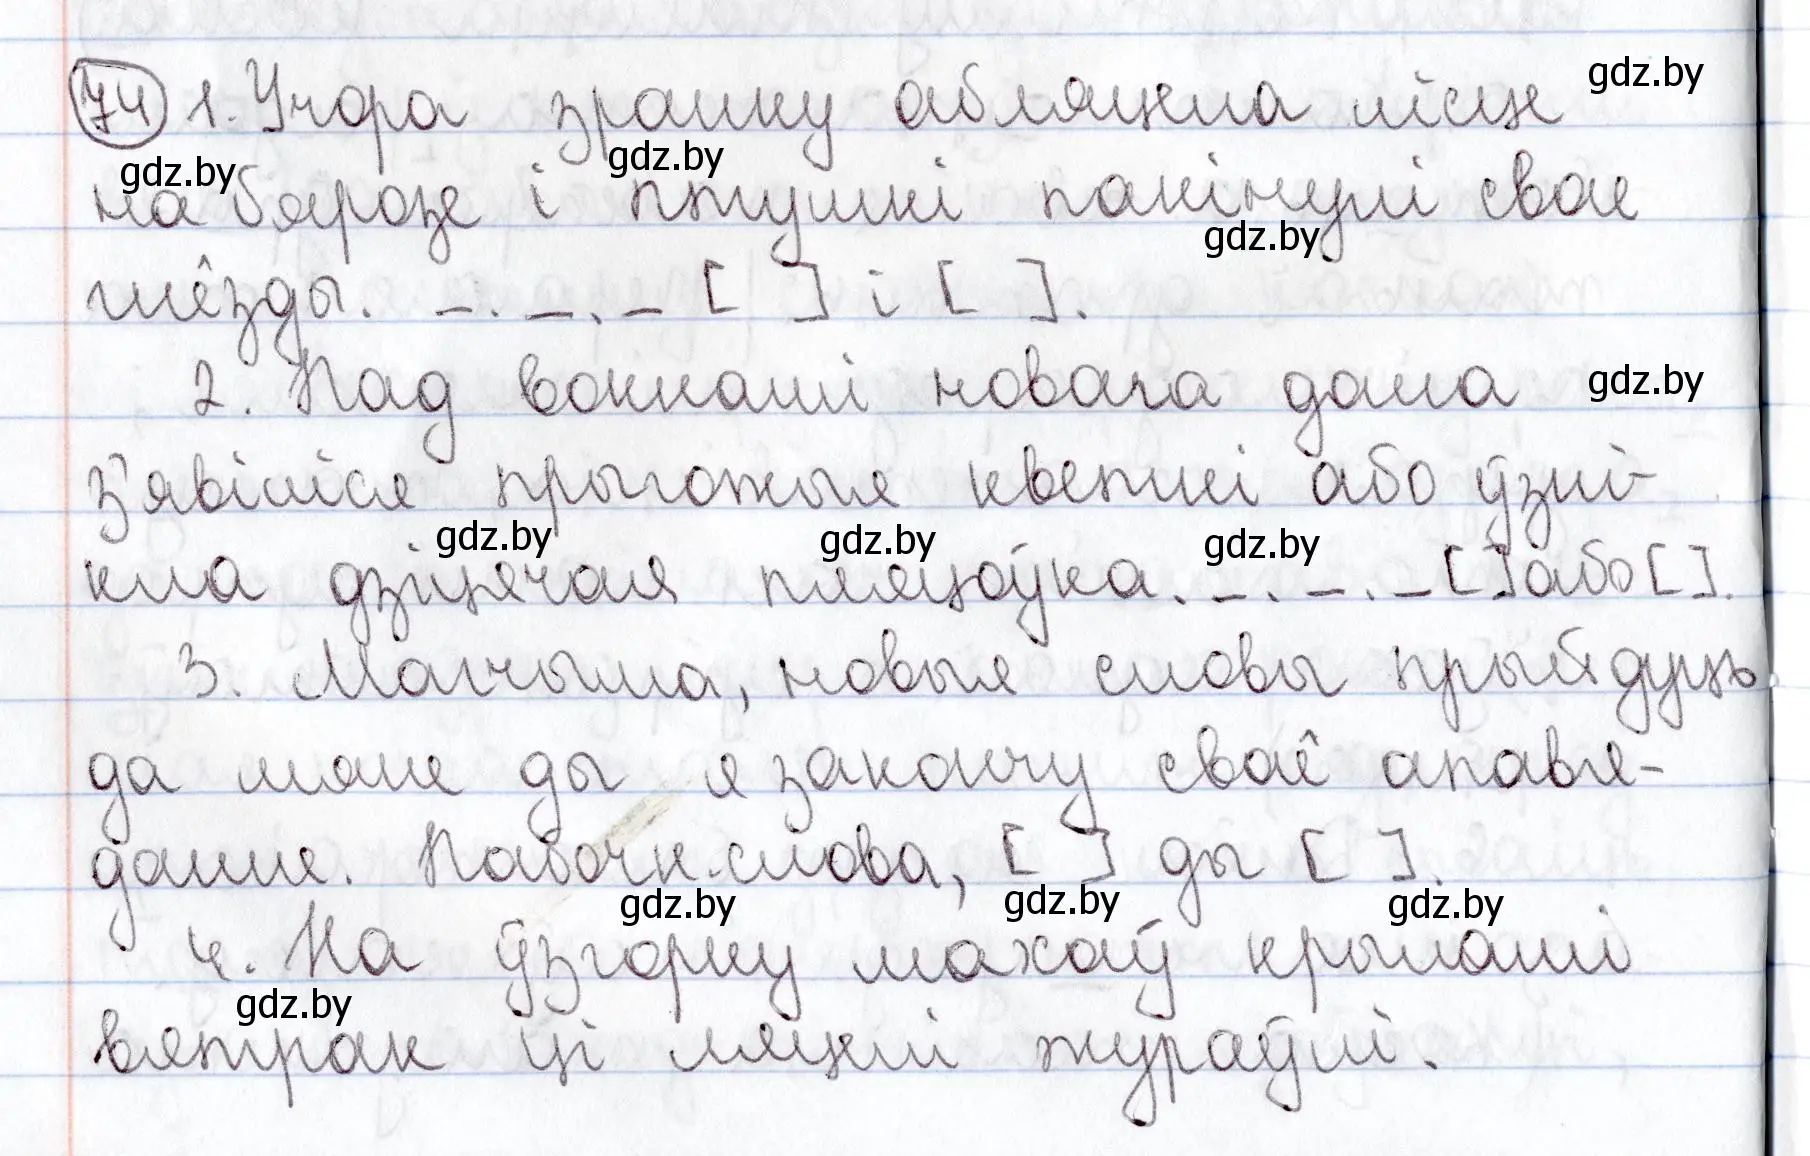 74 1. Учора зранку абляцела лісце
на бярозе і птушкі пакінулі свае
гнёзды. _._._._ [ ] і [ ].
2. Над вокнамі новага дома
з'явіліся прыгожыя кветкі або ўзні-
кла дзіцячая пляцоўка. _._._._ [ ] або [ ].
3. Магчыма, новыя словы прыйдуць
да мяне ды я закончу сваё апавя-
данне. Пабочн. слова, [ ] ды [ ].
4. На ўзгорку махаў крыламі
вятрак ці ляцелі журавлі.
gdz.by
gdz.by
gdz.by
gdz.by
gdz.by
gdz.by
gdz.by
gdz.by
gdz.by
gdz.by
gdz.by
gdz.by